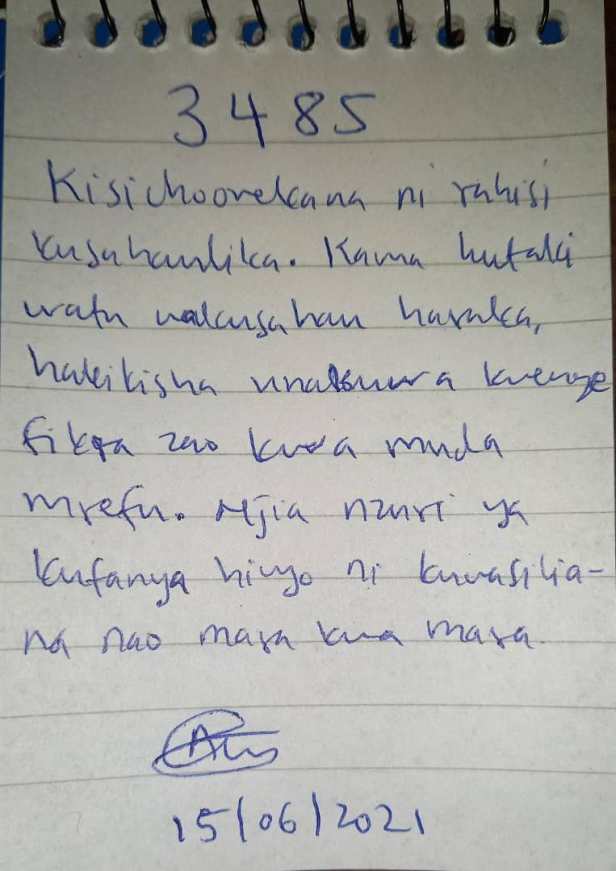 3485
Kisichoonekana ni rahisi
kusahaulika. Kama hutaki
watu wakusahau haraka,
hakikisha unakuwa kwenye
fikra zao kwa muda
mrefu. Njia nzuri ya
kufanya hivyo ni kuwasilia-
na nao mara kwa mara.
15/06/2021